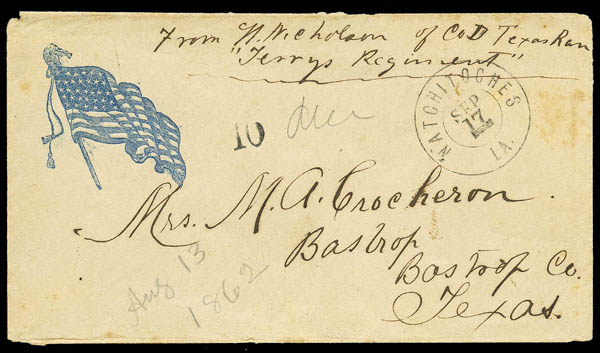 From N. Nicholson of Co D Texas Ran
"Terrys Regiment"
NATCHITOCHES LA.
SEP
17
10 Due
Mrs. M. A. Crocheron
Bastrop
Bastrop Co.
Texas.
Aug 13
1862